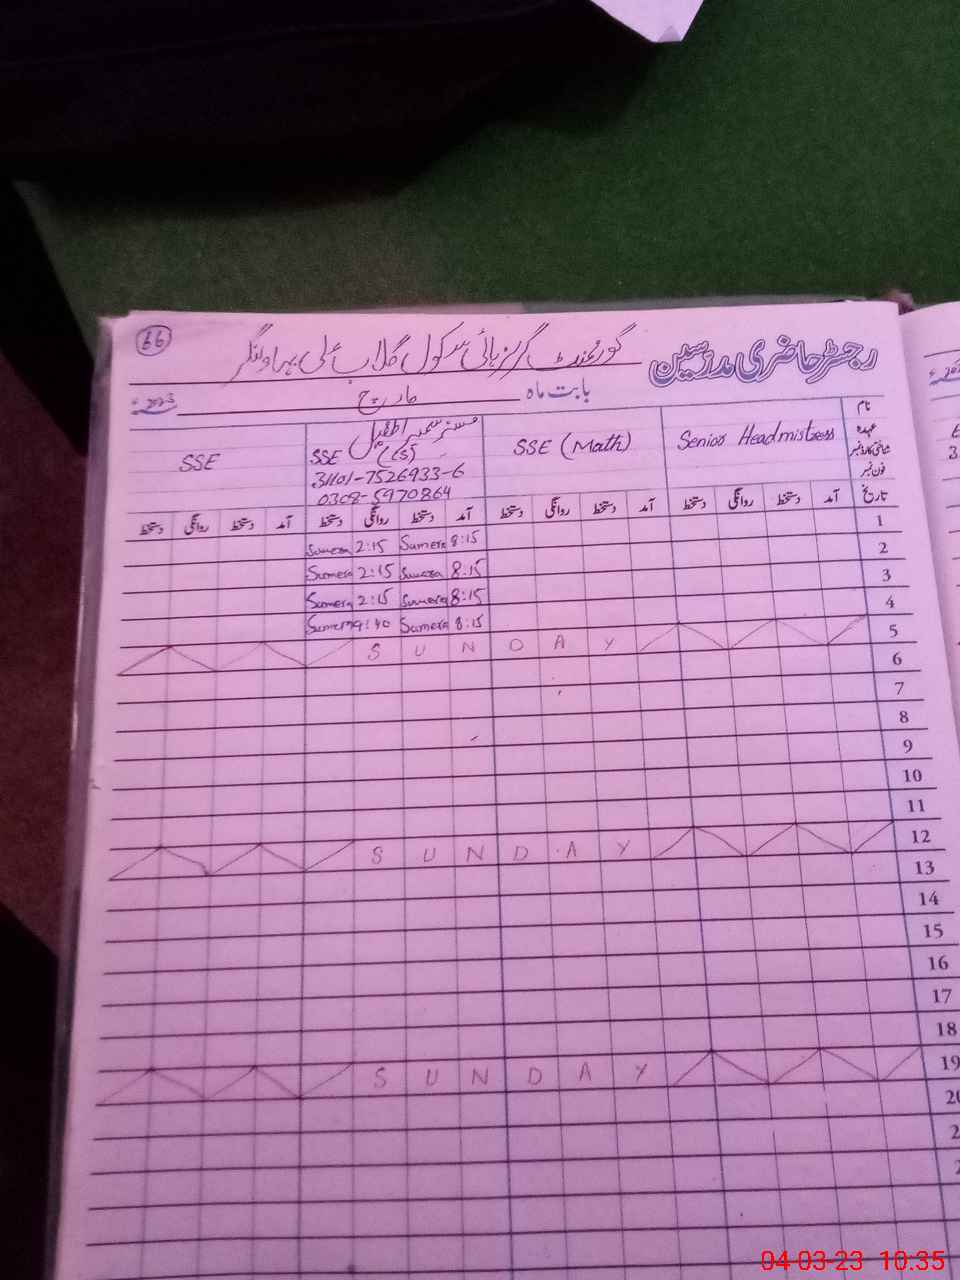 66
رجسٹر حاضری مدرسین گورنمنٹ گرلز ہائی سکول گلاب علی بہاولنگر
بابت ماہ مارچ 2023ء
نام
عہدہ
شناختی کارڈ نمبر
فون نمبر
Senior Headmistress
SSE (Math)
مسز سمیرا طفیل
SSE (CS)
31101-7526933-6
0308-5970864
SSE
تاریخ آمد دستخط روانگی دستخط آمد دستخط روانگی دستخط آمد دستخط روانگی دستخط آمد دستخط روانگی دستخط
Sumera 2:15 Sumera 8:15 1
Sumera 2:15 Sumera 8:15 2
Sumera 2:15 Sumera 8:15 3
Sumera 9:40 Sumera 8:15 4
SUNDAY 5
6
7
8
9
10
11
SUNDAY 12
13
14
15
16
17
18
SUNDAY 19
20
04-03-23 10:35